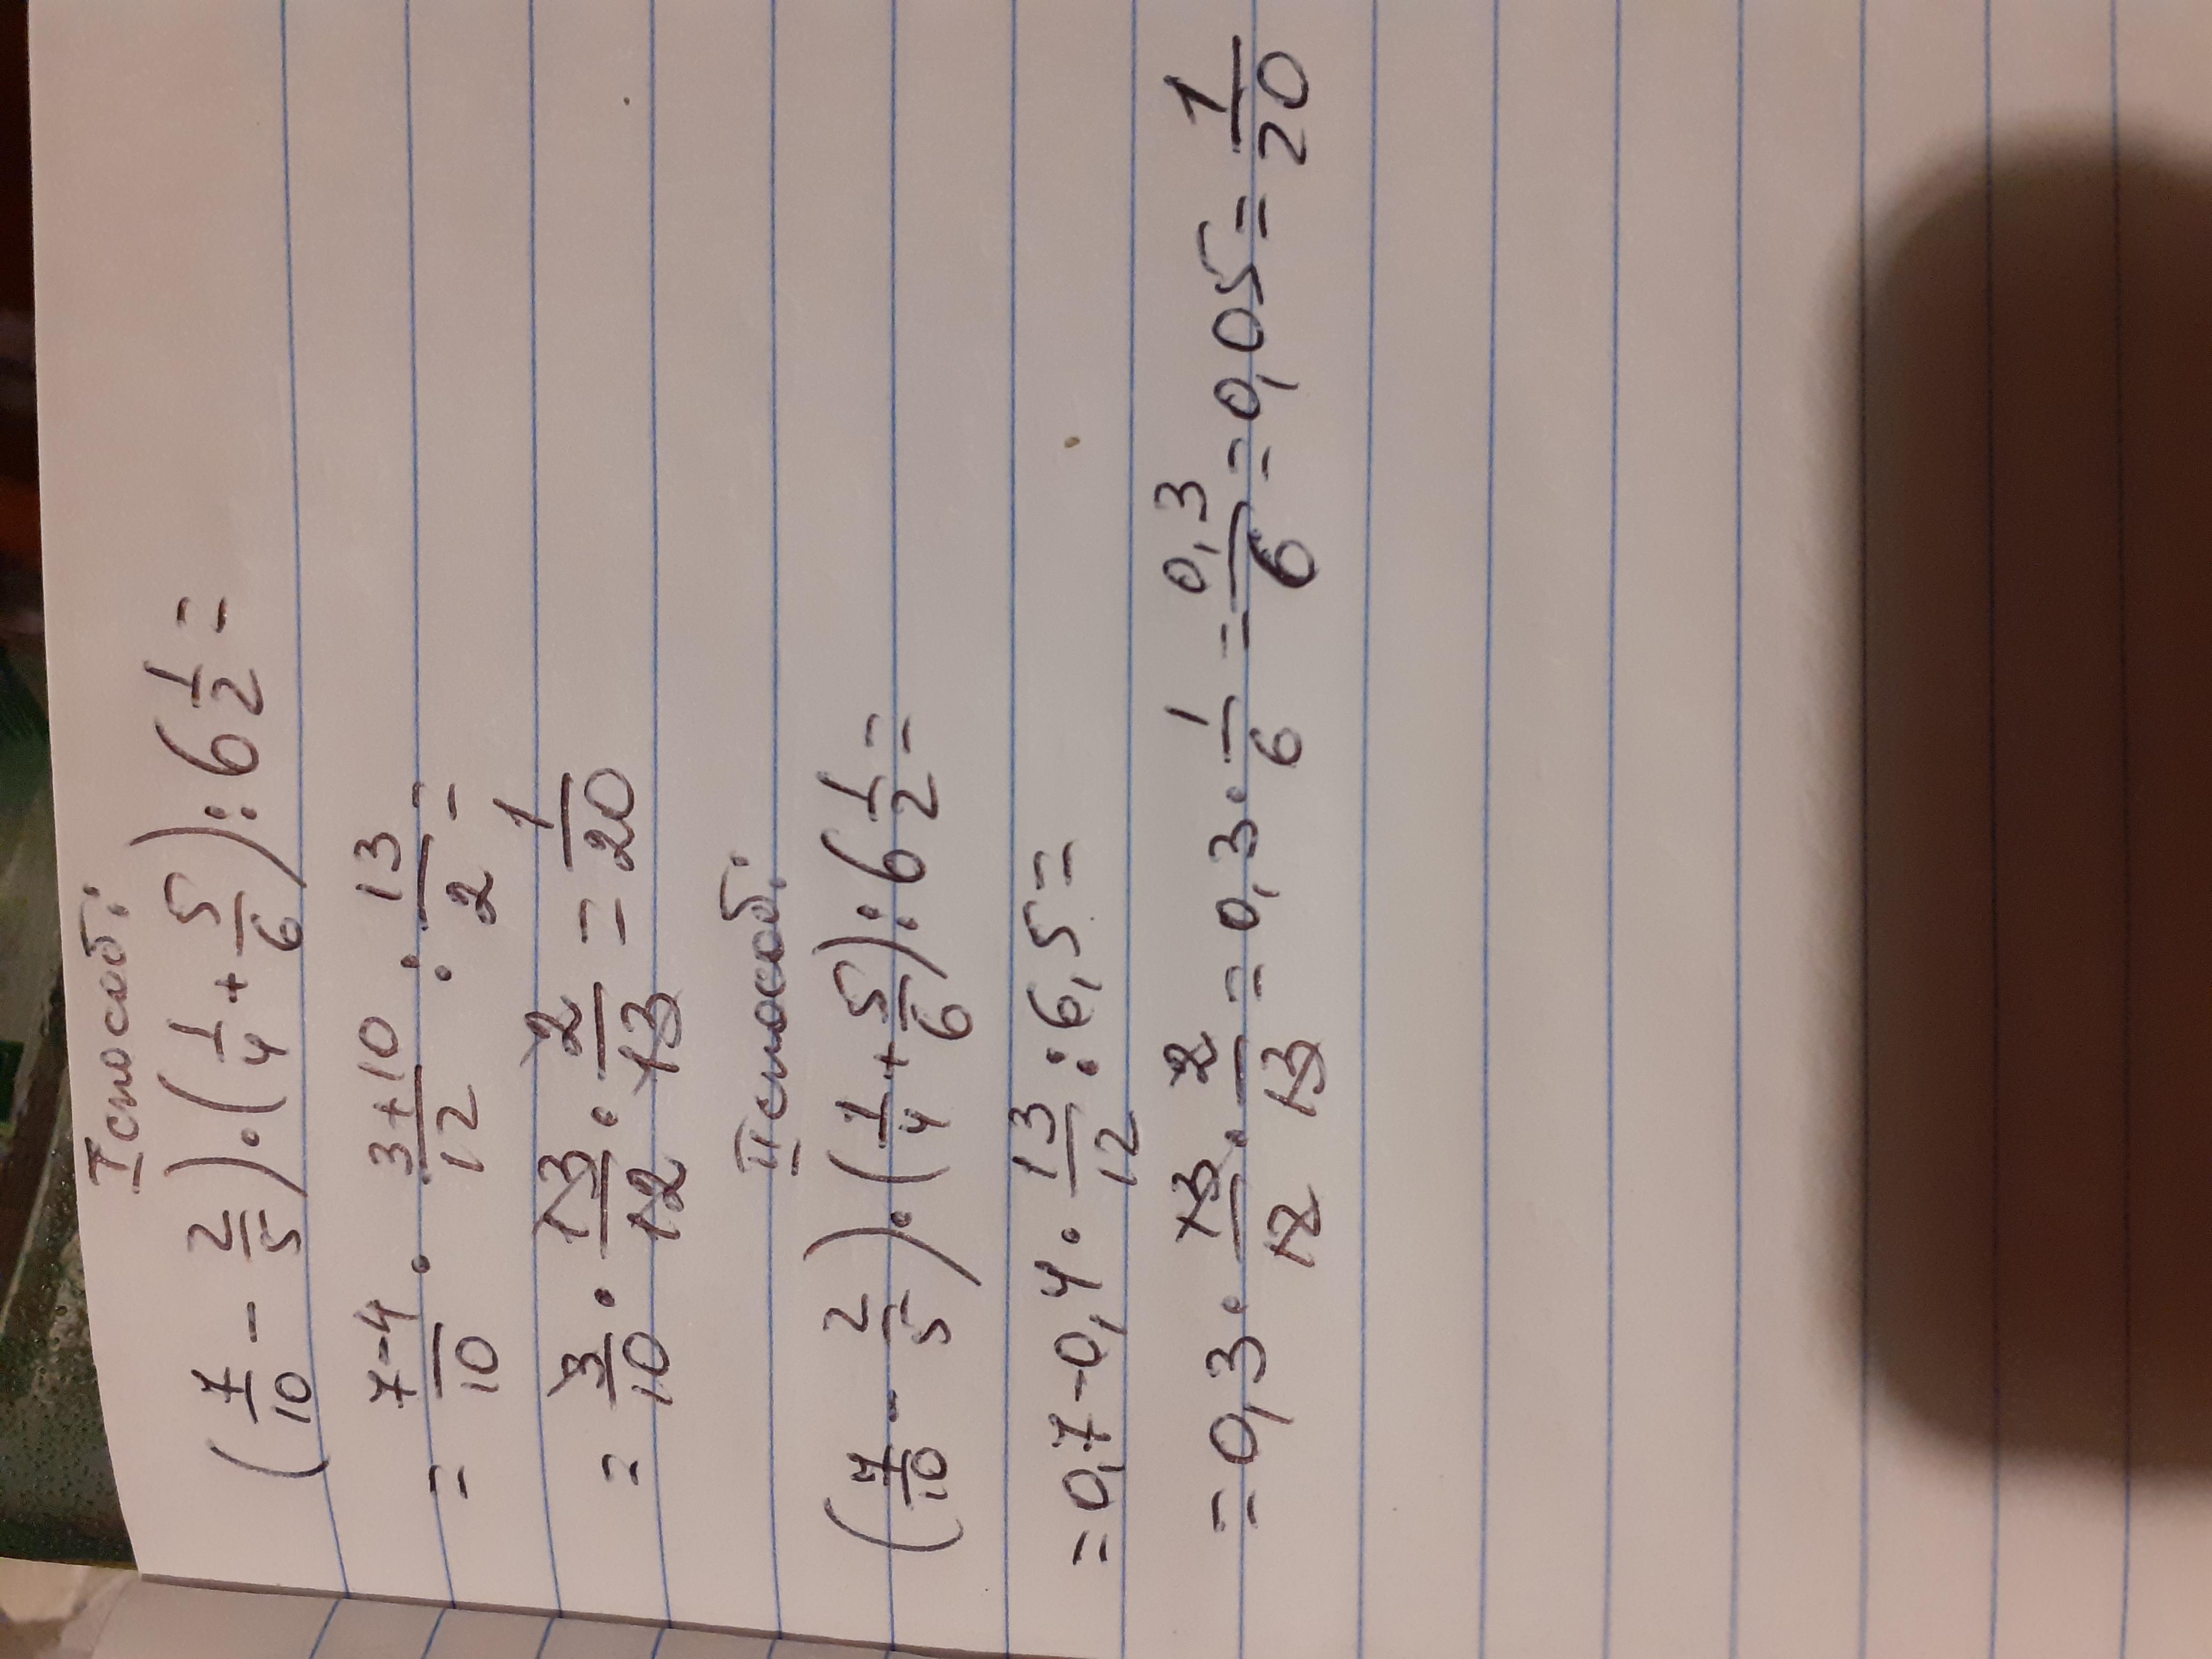 I способ:
(7/10 - 2/5) · (1/4 + 5/6) : 6 1/2 =
= 7-4/10 · 3+10/12 : 13/2 =
= 3/10 · 13/12 · 2/13 = 1/20
II способ:
(7/10 - 2/5) · (1/4 + 5/6) : 6 1/2 =
= 0,7-0,4 · 13/12 : 6,5 =
= 0,3 · 13/12 · 2/13 = 0,3 · 1/6 = 0,3/6 = 0,05 = 1/20